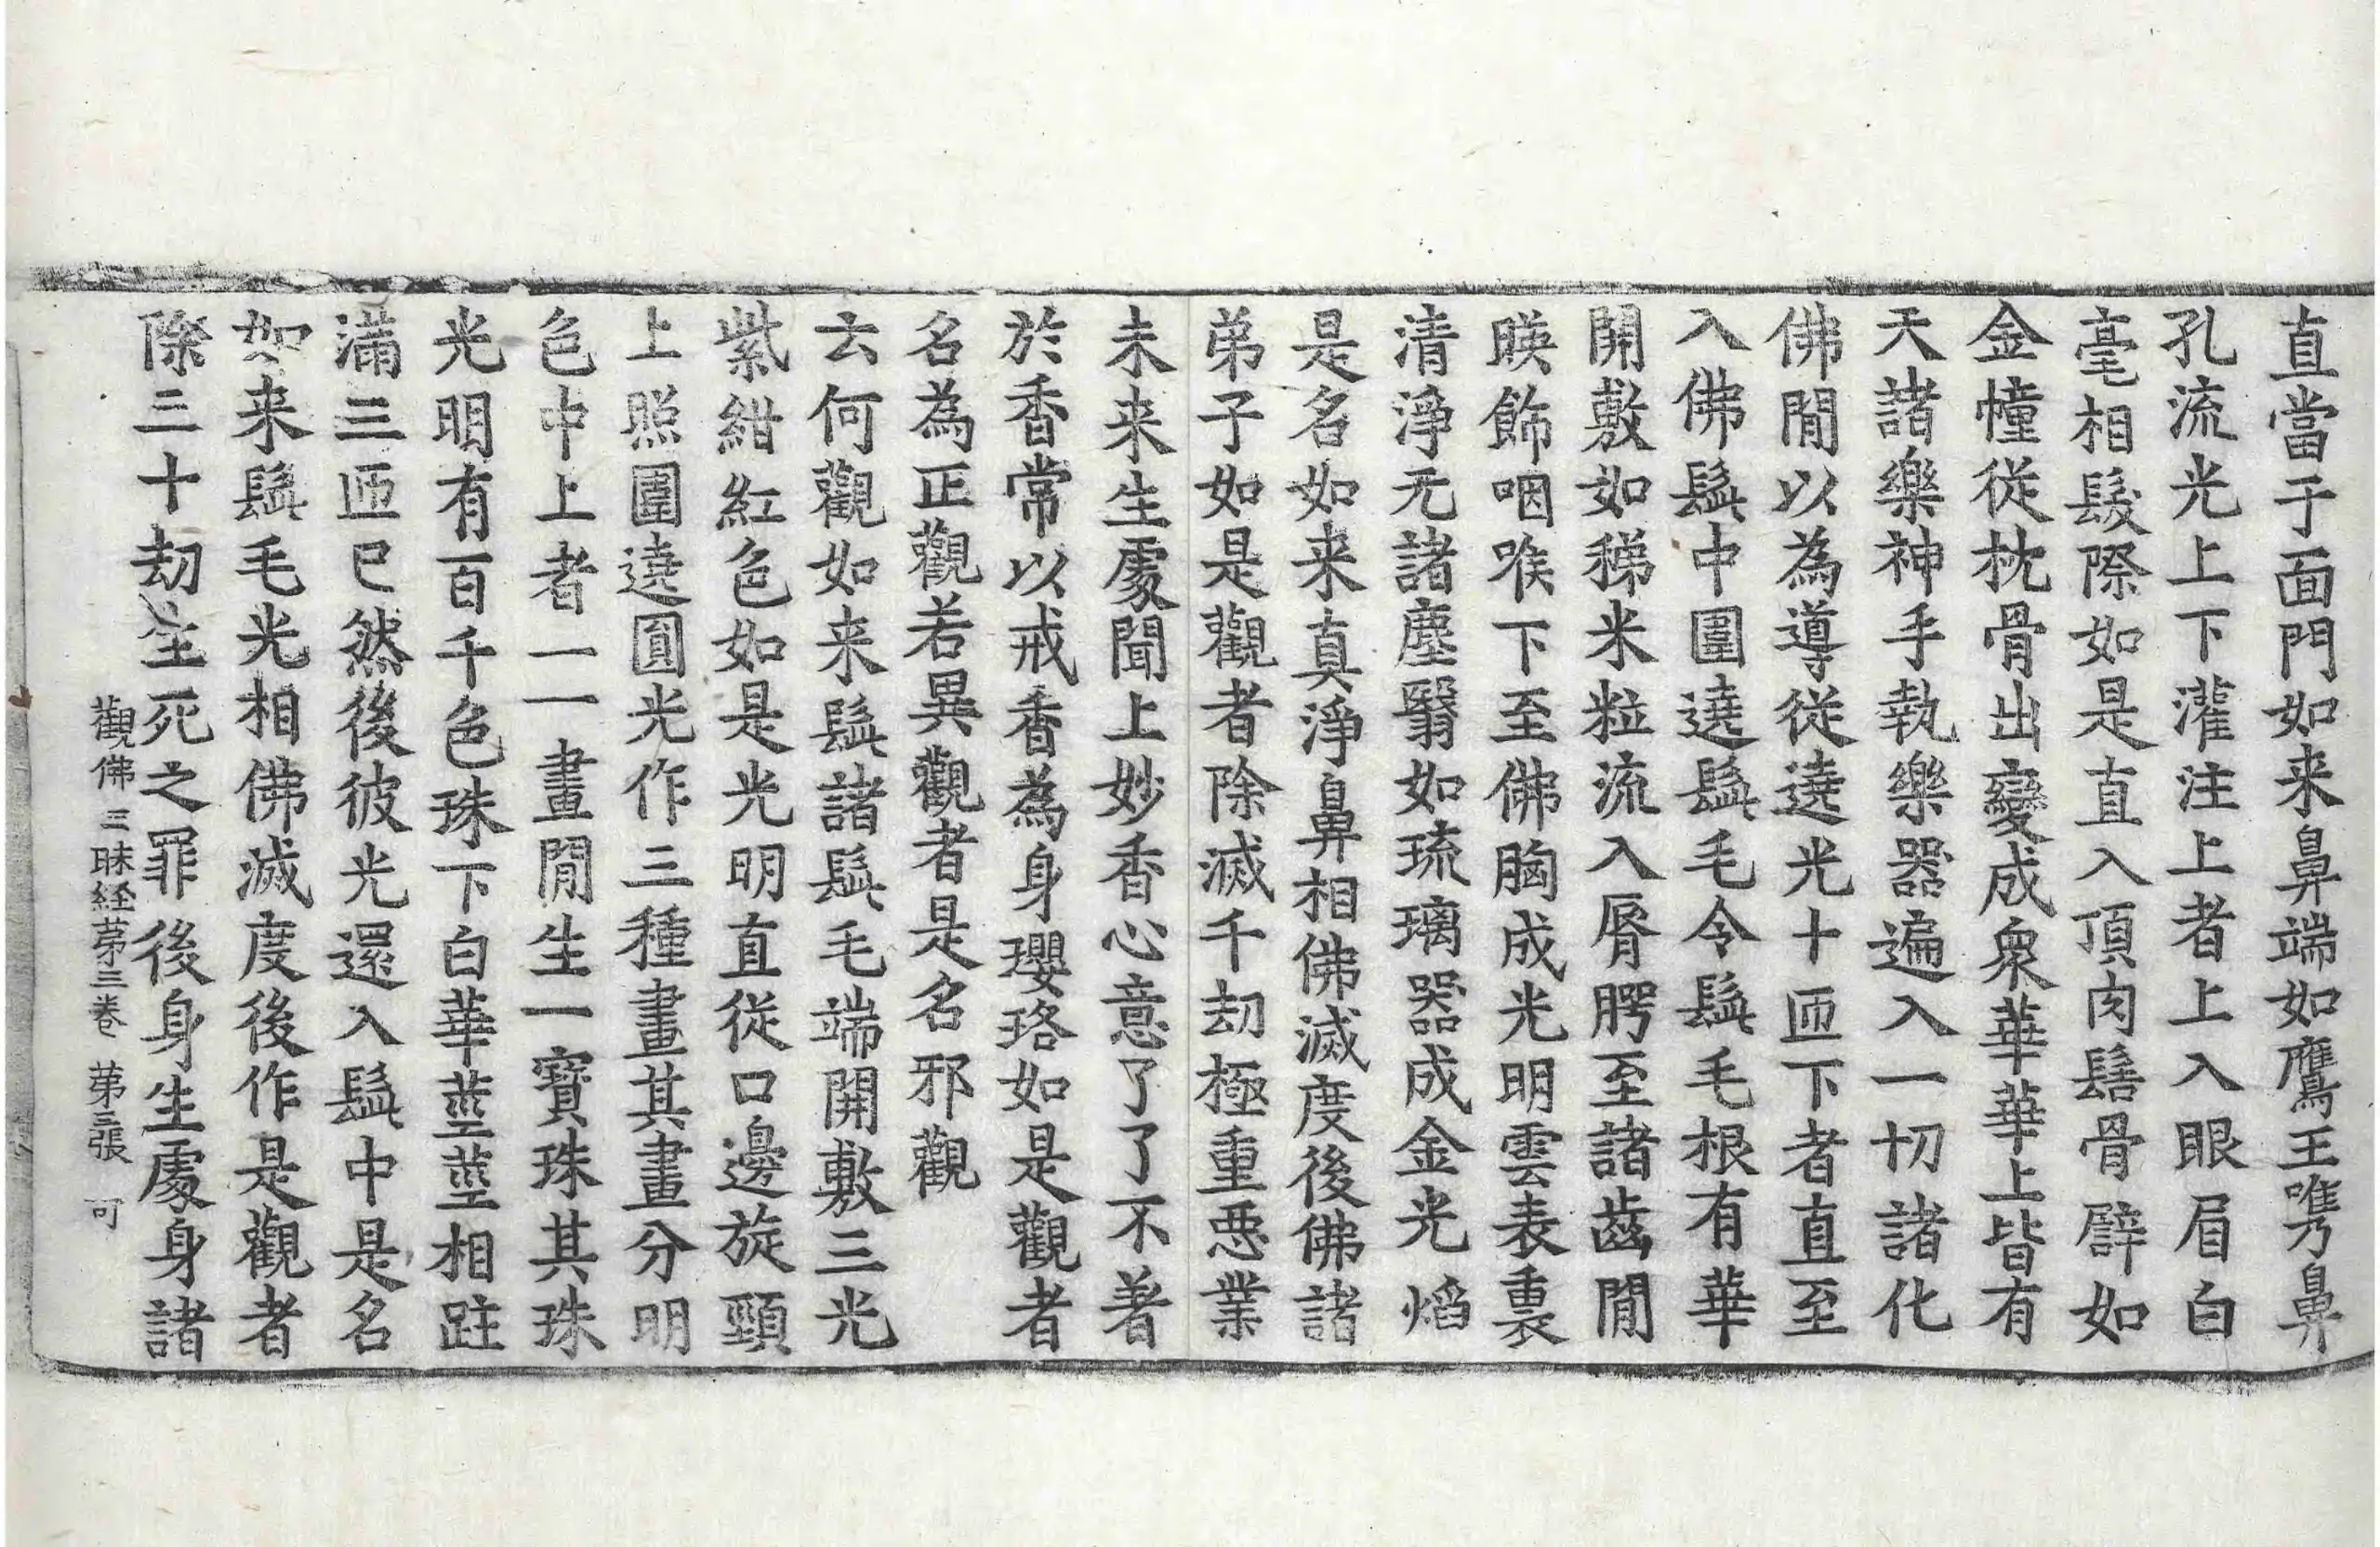 直當于面門如来鼻端如鷹王㗛鼻
孔流光上下灌注上者上入眼眉白
毫相髮際如是直入頂肉髻骨譬如
金幢從枕骨出變成衆華華上皆有
天諸樂神手執樂器遍入一切諸化
佛閒以為導從遶光十匝下者直至
入佛髭中圍遶髭毛令髭毛根有華
開敷如稊米粒流入脣腭至諸齒閒
暎飾咽喉下至佛胸成光明雲表裏
清淨无諸塵翳如琉璃器成金光焰
是名如来真淨鼻相佛滅度後佛諸
弟子如是觀者除滅千劫極重惡業
未来生處聞上妙香心意了了不著
於香常以戒香為身瓔珞如是觀者
名為正觀若異觀者是名邪觀
云何觀如来髭諸髭毛端開敷三光
紫紺紅色如是光明直從口邊旋頸
上照圍遶圓光作三種畫其畫分明
色中上者一一畫閒生一寶珠其珠
光明有百千色珠下白華莖莖相跓
滿三匝已然後彼光還入髭中是名
如来髭毛光相佛滅度後作是觀者
除三十劫生死之罪後身生處身諸
觀佛三昧経苐三卷 苐三張 可